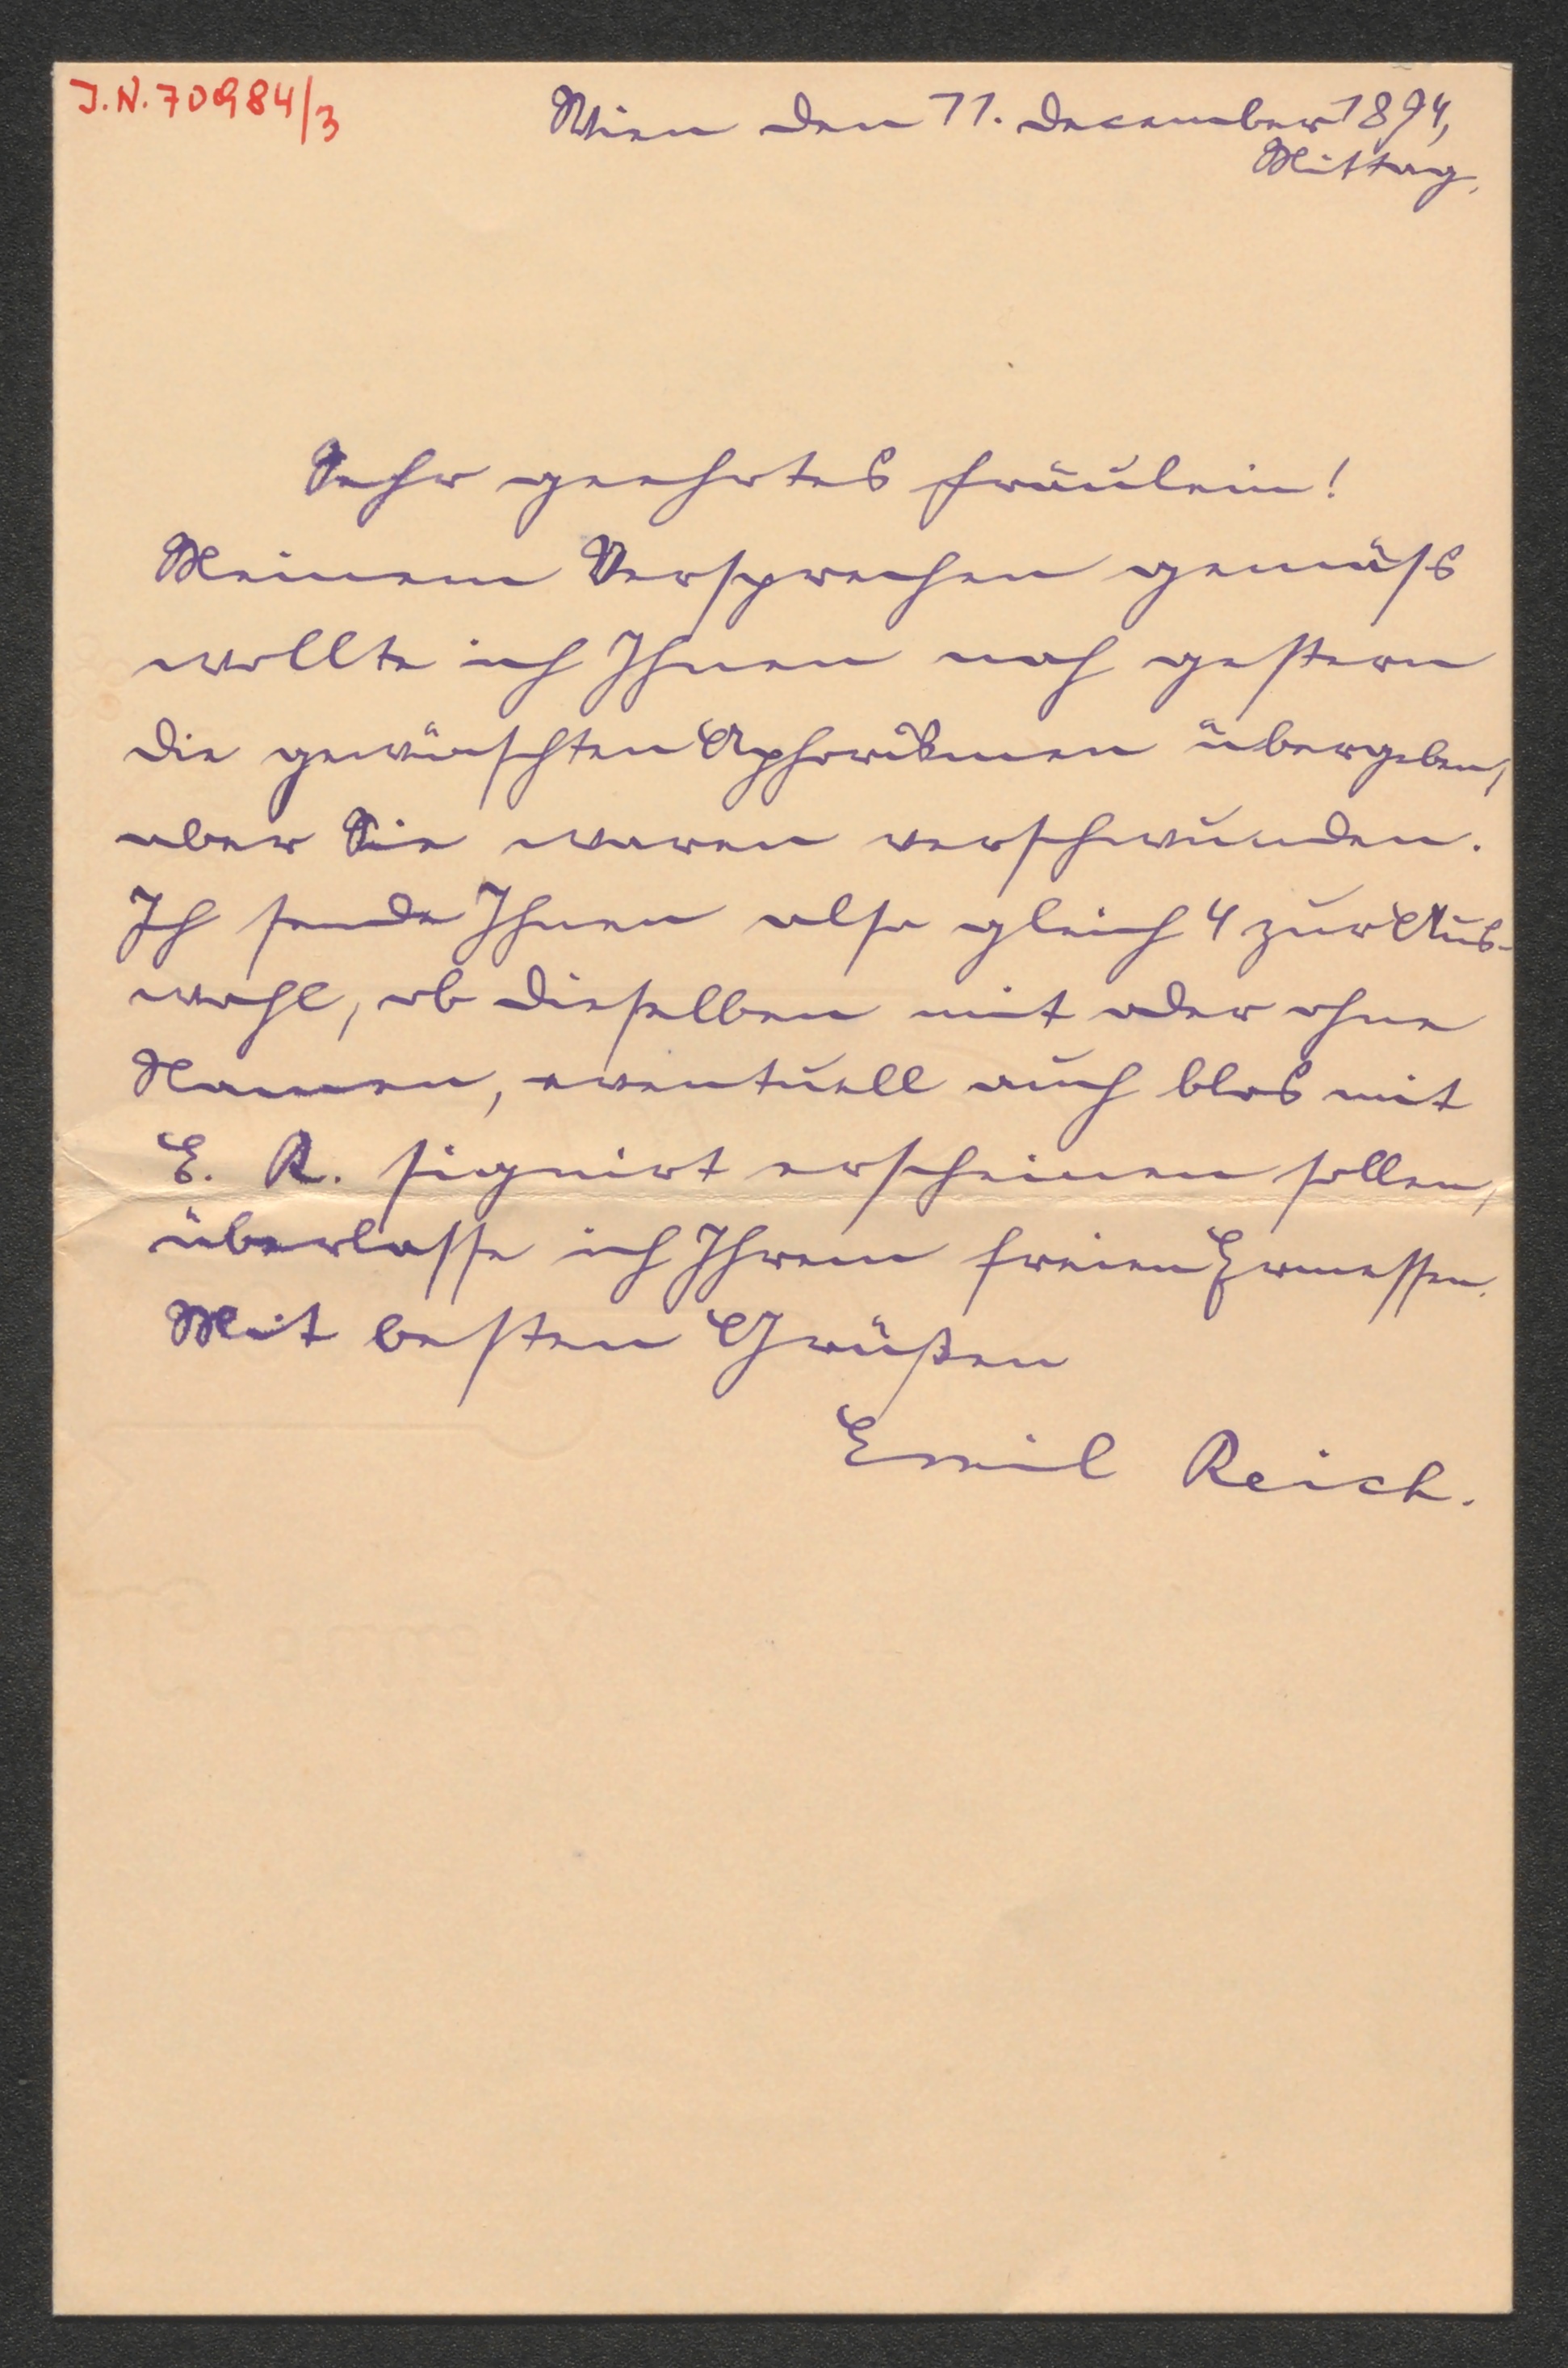 J.N. 70984/3
Wien den 11. December 1894,
Mittag.
Sehr geehrtes Fräulein!
Meinem Versprechen gemäss
wollte ich Ihnen noch gestern
die gewünschten Aphorismen übergeben,
aber Sie waren verschwunden.
Ich sende Ihnen also gleich 4 zur Aus-
wahl, ob dieselben mit oder ohne
Namen, eventuell auch blos mit
E. R. signirt erscheinen sollen,
überlasse ich Ihrem freien Ermessen.
Mit besten Grüßen
Emil Reich.